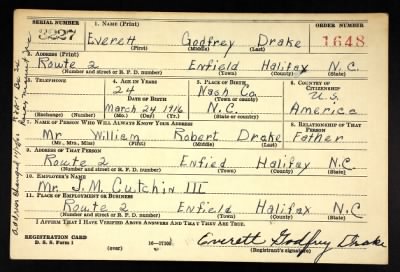 SERIAL NUMBER
1. NAME (Print)
ORDER NUMBER
3227
Everett Godfrey Drake
1648
(First) (Middle) (Last)
2. ADDRESS (Print)
Route 2 Enfield Halifax N.C.
(Number and street or R. F. D. number) (Town) (County) (State)
3. TELEPHONE
4. AGE IN YEARS
5. PLACE OF BIRTH
6. COUNTRY OF CITIZENSHIP
24
Nash Co.
U.S.
DATE OF BIRTH
(Town or county)
March 24 1916
N.C.
America
(Exchange) (No.)
(Mo.) (Day) (Yr.)
(State or country)
7. NAME OF PERSON WHO WILL ALWAYS KNOW YOUR ADDRESS
8. RELATIONSHIP OF THAT PERSON
Mr William Robert Drake
Father
(Mr., Mrs., Miss) (First) (Middle) (Last)
9. ADDRESS OF THAT PERSON
Route 2 Enfied Halifax N.C
(Number and street or R. F. D. number) (Town) (County) (State)
10. EMPLOYER'S NAME
Mr. J.M. Cutchin III
11. PLACE OF EMPLOYMENT OR BUSINESS
Route 2 Enfield Halifax N.C
(Number and street or R. F. D. number) (Town) (County) (State)
I AFFIRM THAT I HAVE VERIFIED ABOVE ANSWERS AND THAT THEY ARE TRUE.
REGISTRATION CARD
D. S. S. Form 1
(over)
Everett Godfrey Drake
(Registrant's signature)
Address Changed